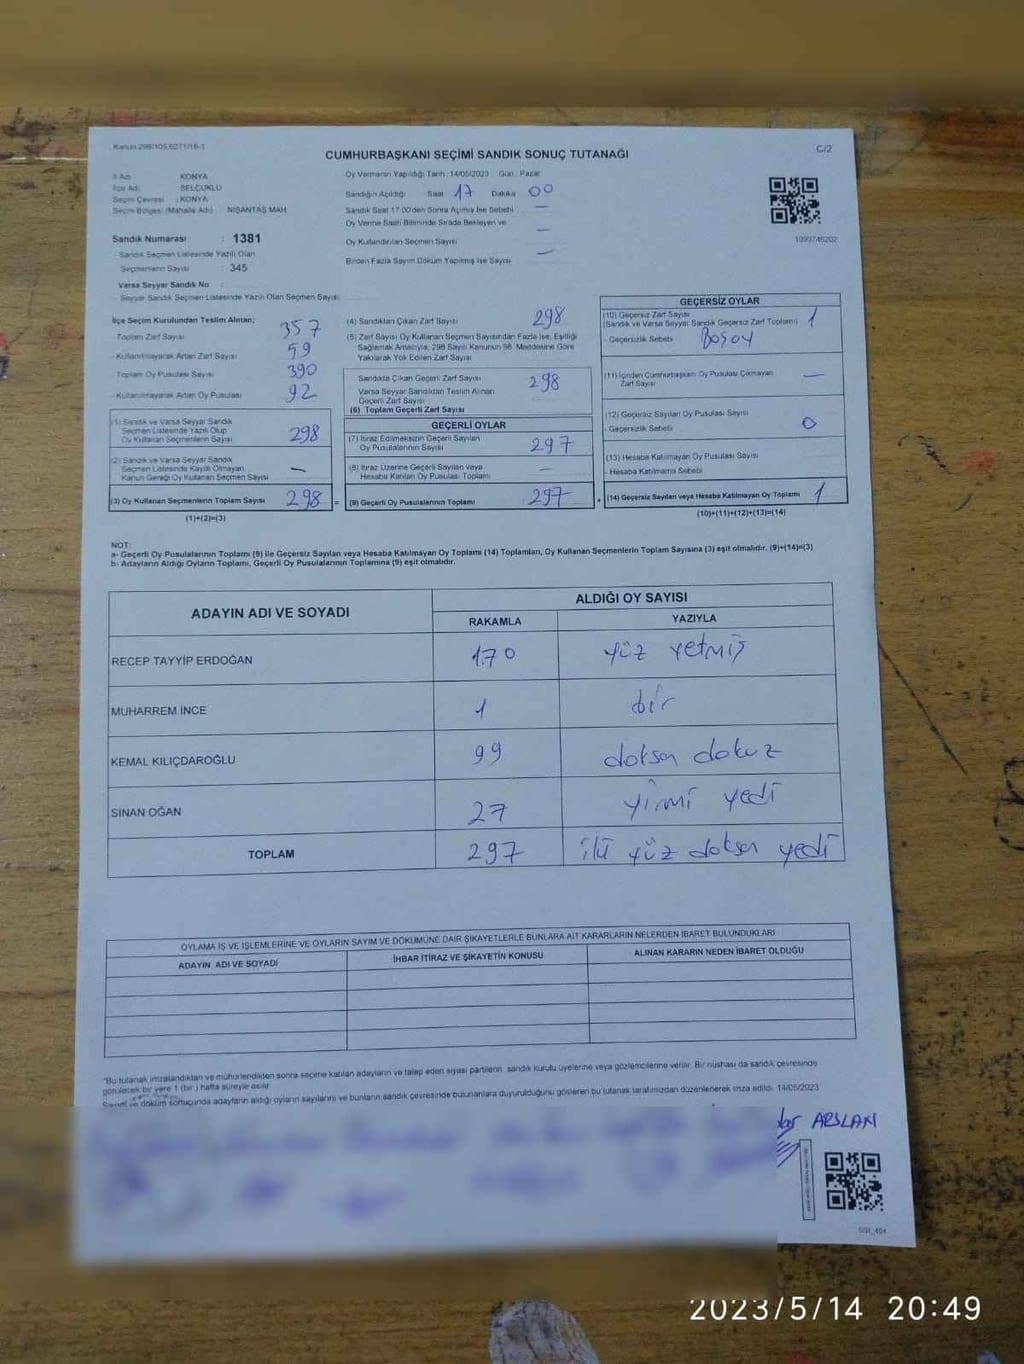 Kanun 298/105,6271/16-1
CUMHURBAŞKANI SEÇİMİ SANDIK SONUÇ TUTANAĞI
C/2
İl Adı : KONYA
İlçe Adı : SELÇUKLU
Seçim Çevresi : KONYA
Seçim Bölgesi (Mahalle Adı) : NİŞANTAŞ MAH.
Sandık Numarası : 1381
- Sandık Seçmen Listesinde Yazılı Olan
Seçmenlerin Sayısı : 345
Varsa Seyyar Sandık No :
- Seyyar Sandık Seçmen Listesinde Yazılı Olan Seçmen Sayısı
Oy Vermenin Yapıldığı Tarih : 14/05/2023 Gün : Pazar
Sandığın Açıldığı Saat 17 Dakika 00
Sandık Saat 17.00'den Sonra Açılmış İse Sebebi —
Oy Verme Saati Bitiminde Sırada Bekleyen ve
Oy Kullandırılan Seçmen Sayısı —
Birden Fazla Sayım Döküm Yapılmış İse Sayısı —
1093746202
İlçe Seçim Kurulundan Teslim Alınan;
- Toplam Zarf Sayısı 357
- Kullanılmayarak Artan Zarf Sayısı 59
- Toplam Oy Pusulası Sayısı 390
- Kullanılmayarak Artan Oy Pusulası 92
(1) Sandık ve Varsa Seyyar Sandık
Seçmen Listesinde Yazılı Olup
Oy Kullanan Seçmenlerin Sayısı 298
(2) Sandık ve Varsa Seyyar Sandık
Seçmen Listesinde Kayıtlı Olmayan
Kanun Gereği Oy Kullanan Seçmen Sayısı —
(3) Oy Kullanan Seçmenlerin Toplam Sayısı 298 =
(1)+(2)=(3)
(4) Sandıktan Çıkan Zarf Sayısı 298
(5) Zarf Sayısı Oy Kullanan Seçmen Sayısından Fazla İse, Eşitliği
Sağlamak Amacıyla, 298 Sayılı Kanunun 98. Maddesine Göre
Yakılarak Yok Edilen Zarf Sayısı
Sandıkta Çıkan Geçerli Zarf Sayısı 298
Varsa Seyyar Sandıktan Teslim Alınan
Geçerli Zarf Sayısı
(6) Toplam Geçerli Zarf Sayısı
GEÇERLİ OYLAR
(7) İtiraz Edilmeksizin Geçerli Sayılan
Oy Pusulalarının Sayısı 297
(8) İtiraz Üzerine Geçerli Sayılan veya
Hesaba Katılan Oy Pusulası Toplamı —
(9) Geçerli Oy Pusulalarının Toplamı 297 +
GEÇERSİZ OYLAR
(10) Geçersiz Zarf Sayısı
(Sandık ve Varsa Seyyar Sandık Geçersiz Zarf Toplamı) 1
- Geçersizlik Sebebi Boşoy
(11) İçinden Cumhurbaşkanı Oy Pusulası Çıkmayan
Zarf Sayısı —
(12) Geçersiz Sayılan Oy Pusulası Sayısı
- Geçersizlik Sebebi 0
(13) Hesaba Katılmayan Oy Pusulası Sayısı
- Hesaba Katılmama Sebebi
(14) Geçersiz Sayılan veya Hesaba Katılmayan Oy Toplamı 1
(10)+(11)+(12)+(13)=(14)
NOT:
a- Geçerli Oy Pusulalarının Toplamı (9) ile Geçersiz Sayılan veya Hesaba Katılmayan Oy Toplamı (14) Toplamları, Oy Kullanan Seçmenlerin Toplam Sayısına (3) eşit olmalıdır. (9)+(14)=(3)
b- Adayların Aldığı Oyların Toplamı, Geçerli Oy Pusulalarının Toplamına (9) eşit olmalıdır.
ADAYIN ADI VE SOYADI
ALDIĞI OY SAYISI
RAKAMLA YAZIYLA
RECEP TAYYİP ERDOĞAN 170 yüz yetmiş
MUHARREM İNCE 1 bir
KEMAL KILIÇDAROĞLU 99 doksan dokuz
SİNAN OĞAN 27 yirmi yedi
TOPLAM 297 iki yüz doksan yedi
OYLAMA İŞ VE İŞLEMLERİNE VE OYLARIN SAYIM VE DÖKÜMÜNE DAİR ŞİKAYETLERLE BUNLARA AİT KARARLARIN NELERDEN İBARET BULUNDUKLARI
ADAYIN ADI VE SOYADI
İHBAR İTİRAZ VE ŞİKAYETİN KONUSU
ALINAN KARARIN NEDEN İBARET OLDUĞU
"Bu tutanak imzalandıktan ve mühürlendikten sonra seçime katılan adayların ve talep eden siyasi partilerin sandık kurulu üyelerine veya gözlemcilerine verilir. Bir nüshası da sandık çevresinde
görülecek bir yere 1 (bir) hafta süreyle asılır.
Sayım ve döküm sonucunda adayların aldığı oyların sayılarını ve bunların sandık çevresinde bulunanlara duyurulduğunu gösteren bu tutanak tarafımızdan düzenlenerek imza edildi. 14/05/2023
ARSLAN
2023/5/14 20:49